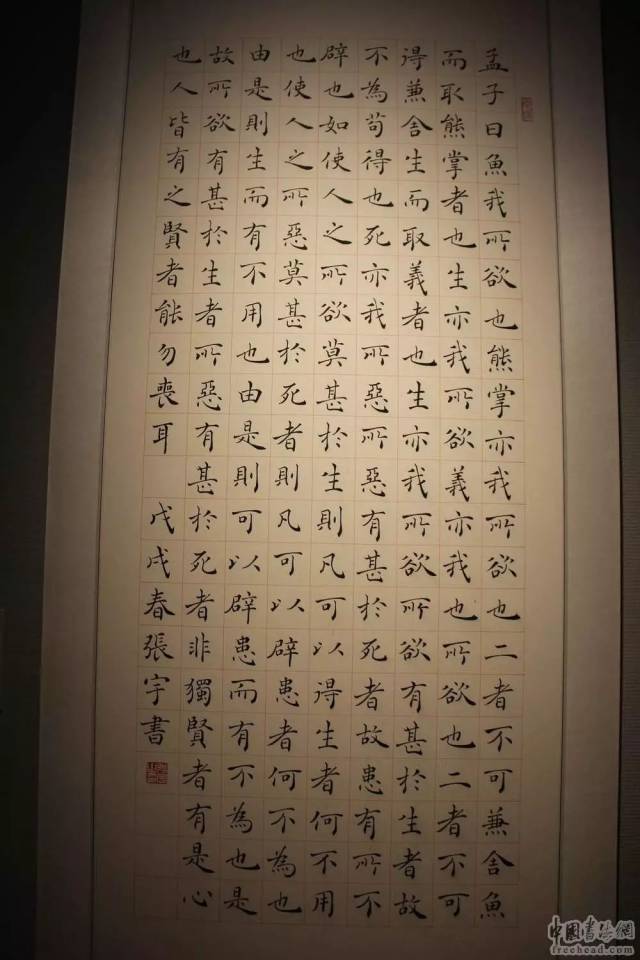 孟子曰魚我所欲也熊掌亦我所欲也二者不可兼舍魚
而取熊掌者也生亦我所欲義亦我也所欲也二者不可
得兼舍生而取義者也生亦我所欲所欲有甚於生者故
不為苟得也死亦我所惡所惡有甚於死者故患有所不
辟也如使人之所欲莫甚於生則凡可以得生者何不用
也使人之所惡莫甚於死者則凡可以辟患者何不為也
由是則生而有不用也由是則可以辟患而有不為也是
故所欲有甚於生者所惡有甚於死者非獨賢者有是心
也人皆有之賢者能勿喪耳 戊戌春張宇書
中國書法網
freehead.com